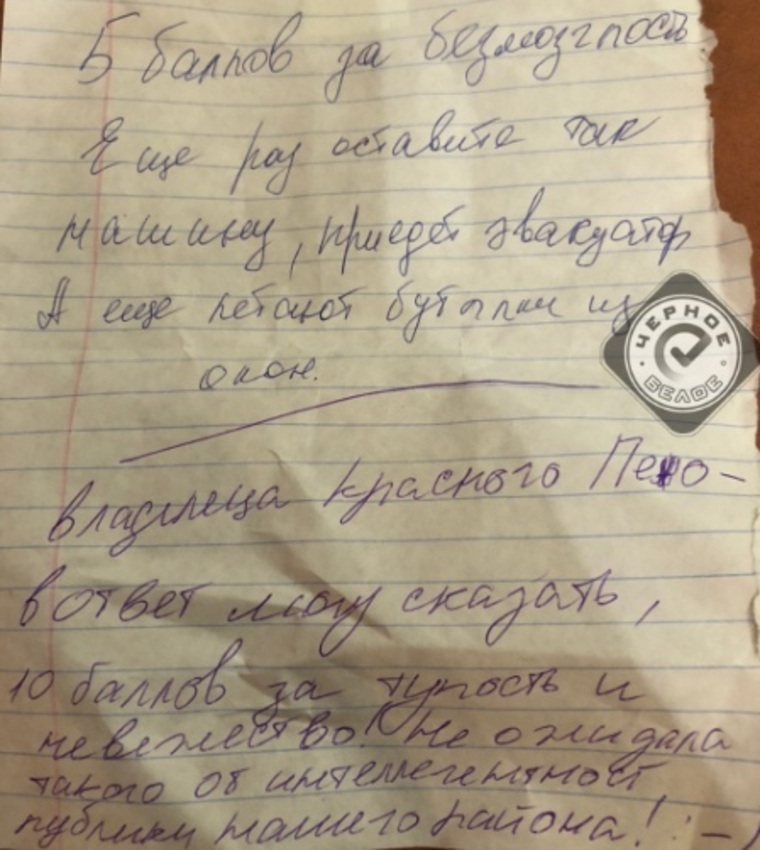 5 баллов за безмозглость
Еще раз оставите так
машину, приедет эвакуатор
А еще летают бутылки из
окон.
ЧЕРНОЕ
БЕЛОЕ
владелеца красного Пежо -
в ответ могу сказать,
10 баллов за тупость и
невежество! Не ожидала
такого от интеллегентност,
публики нашего района! :-)